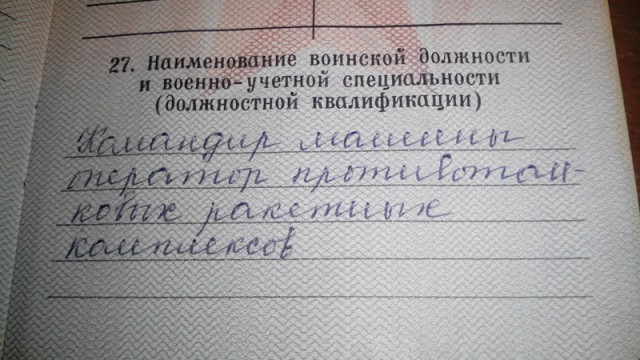 27. Наименование воинской должности
и военно-учетной специальности
(должностной квалификации)
Командир машины
оператор противотан-
ковых ракетных
комплексов